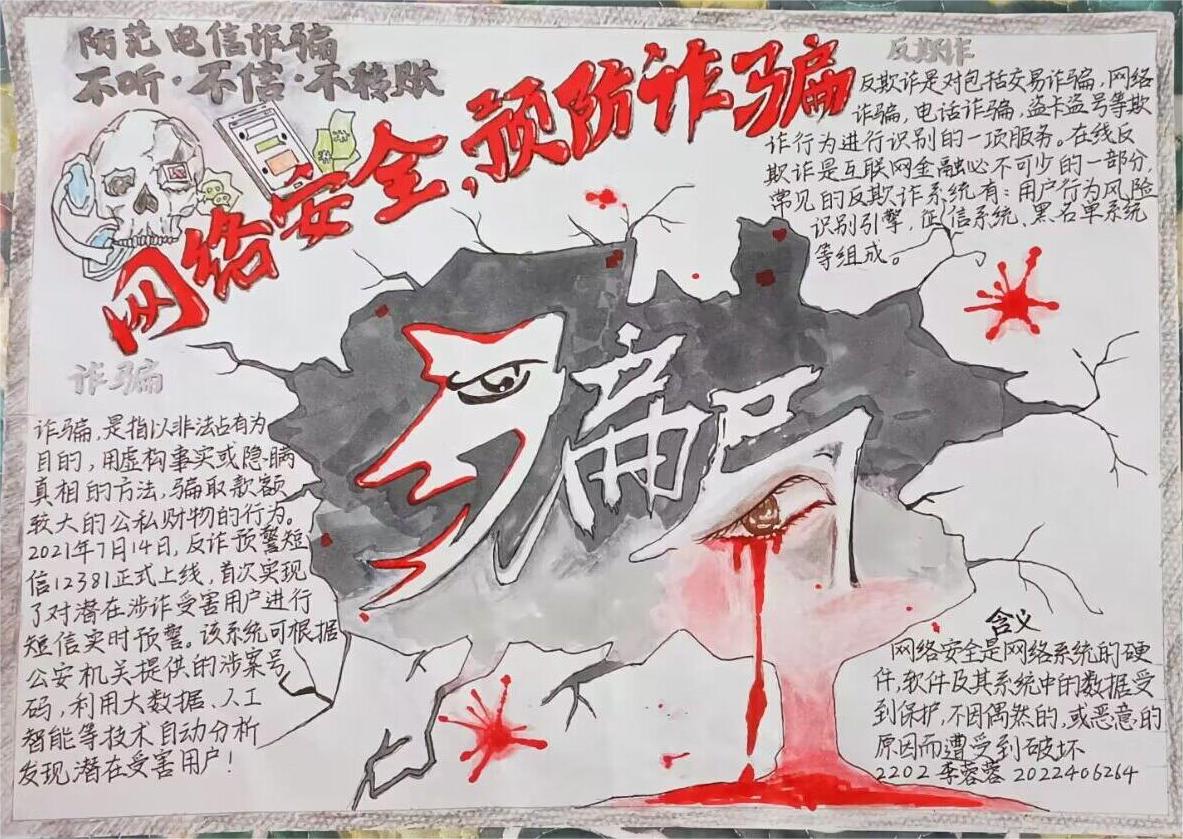 防范电信诈骗
不听·不信·不转账
网络安全,预防诈骗
反欺诈
反欺诈是对包括交易诈骗,网络
诈骗,电话诈骗,盗卡盗号等欺
诈行为进行识别的一项服务。在线反
欺诈是互联网金融必不可少的一部分,
常见的反欺诈系统有:用户行为风险
识别引擎,征信系统、黑名单系统
等组成。
诈骗
诈骗,是指以非法占有为
目的,用虚构事实或隐瞒
真相的方法,骗取款额
较大的公私财物的行为。
2021年7月14日,反诈预警短
信12381正式上线,首次实现
了对潜在涉诈受害用户进行
短信实时预警。该系统可根据
公安机关提供的涉案号
码,利用大数据、人工
智能等技术自动分析
发现潜在受害用户!
骗局
含义
网络安全是网络系统的硬
件,软件及其系统中的数据受
到保护,不因偶然的,或恶意的
原因而遭受到破坏
2202 李蓉蓉 2022406264